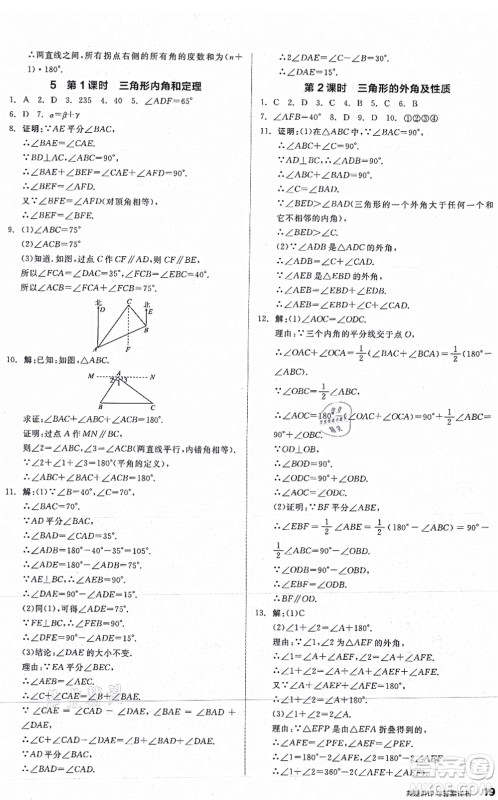 ∴两直线之间，所有拐点右侧的所有角的度数和为(n+
1)·180°.
5 第1课时 三角形内角和定理
1. A 2. D 3. 235 4. 40 5. ∠ADF=65°
6. D 7. α=β+γ
8. 证明:∵AE平分∠BAC,
∴∠BAE=∠CAE.
∵BD⊥AC,∠ABC=90°,
∴∠BAE+∠BEF=∠CAE+∠AFD=90°.
∴∠BEF=∠AFD.
又∵∠BFE=∠AFD(对顶角相等),
∴∠BEF=∠BFE.
9. (1)∠ABC=75°
(2)∠ACB=75°
(3)知道.如图,过点C作CF∥AD∥BE,
所以∠FCA=∠DAC=35°,∠FCB=∠EBC=40°,
所以∠ACB=∠FCA+∠FCB=75°.
北 D C 北 E B A F
10. 解:已知:如图,△ABC.
M A N 2 1 3 B C
求证:∠BAC+∠ABC+∠ACB=180°.
证明:过点A作MN∥BC,
则∠2=∠ABC,∠3=∠ACB(两直线平行,内错角相等).
∵∠2+∠1+∠3=180°(平角的定义),
∴∠BAC+∠ABC+∠ACB=180°.
11. 解:(1)∵∠B=40°,∠C=70°,
∴∠BAC=70°.
∵AD平分∠BAC,
∴∠BAD=∠CAD=35°.
∴∠ADE=180°-40°-35°=105°.
∴∠ADE=180°-105°=75°.
∵AE⊥BC,∴∠AEB=90°.
∴∠DAE=90°-∠ADE=15°.
(2)同(1),可得∠ADE=75°.
∵FE⊥BC,∴∠FEB=90°.
∴∠DFE=90°-∠ADE=15°.
(3)结论:∠DAE的大小不变.
理由:∵EA平分∠BEC,
∴∠AEB=∠AEC.
∴∠C+∠CAE=∠B+∠BAE.
∵∠CAE=∠CAD-∠DAE,∠BAE=∠BAD+
∠DAE,
∴∠C+∠CAD-∠DAE=∠B+∠BAD+∠DAE.
∵AD平分∠BAC,
∴∠BAD=∠CAD.
∴2∠DAE=∠C-∠B=30°.
∴∠DAE=15°.
第2课时 三角形的外角及性质
1. C 2. D 3. C 4. B 5. C 6. B
7. ∠AFB=40° 8. 12° 9. 10° 10. ①②③④
11. 证明:(1)在△ABC中,∵∠BAC=90°,
∴∠ABC+∠C=90°.
∵AD⊥BC,
∴∠CAD+∠C=90°.
∴∠ABC=∠CAD.
∵∠BED>∠BAD(三角形的一个外角大于任何一个和
它不相邻的内角),
∴∠BED>∠C.
(2)∵∠ADB是△ADC的外角,
∴∠ADB=∠CAD+∠C.
∵∠AEB是△EBD的外角,
∴∠AEB=∠ADB+∠EBD.
∴∠AEB=∠CAD+∠C+∠EBD.
12. 解:(1)∠AOC=∠ODC.
理由:∵三个内角的平分线交于点O,
∴∠OAC+∠OCA=1/2(∠BAC+∠BCA)=1/2(180°-
∠ABC).
∵∠OBC=1/2∠ABC,
∴∠AOC=180°-(∠OAC+∠OCA)=90°+1/2∠ABC
=90°+∠OBC.
∵OD⊥OB,
∴∠BOD=90°.
∴∠ODC=90°+∠OBC.
∴∠AOC=∠ODC.
(2)证明:∵BF平分∠ABE,
∴∠EBF=1/2∠ABE=1/2(180°-∠ABC)=90°-
1/2∠ABC=90°-∠DBO.
∵∠ODB=90°-∠OBD,
∴∠EBF=∠ODB.
∴BF∥OD.
13. 解:(1)C
(2)∠1+∠2=∠A+180°
理由:∵∠1,∠2为△AEF的外角,
∴∠1=∠A+∠AEF,∠2=∠A+∠AFE.
∴∠1+∠2=∠A+∠AEF+∠A+∠AFE.
∴∠1+∠2=∠A+180°.
(3)∠1+∠2=2∠A
理由:∵△EFP是由△EFA折叠得到的,
∴∠AFE=∠PFE,∠AEF=∠PEF.
∴∠1=180°-2∠AFE,∠2=180°-2∠AEF.
∴∠1+∠2=360°-2(∠AFE+∠AEF).
19